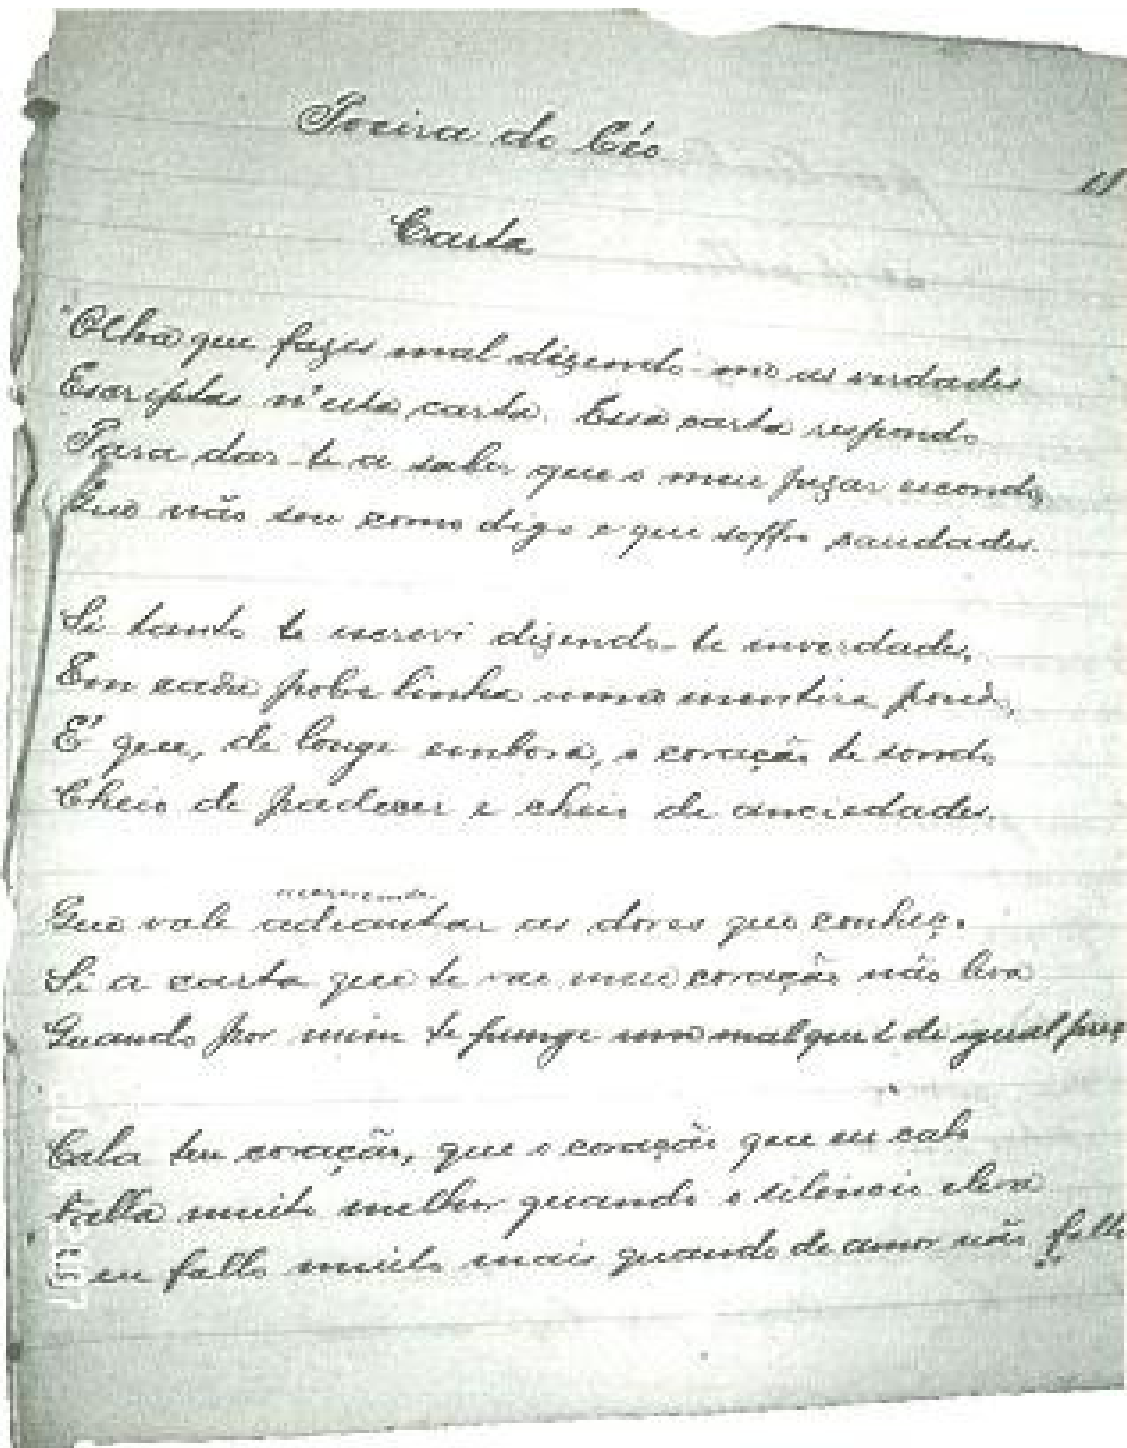 Poeira do Céo
Carta
"Olha que fazes mal dizendo-me as verdades
Escriptas n'esta carta. Essa carta respondo
Para dar-te a saber que o meu pezar escondo,
Que não sou como digo e que soffro saudades.
Si tanto te escrevi dizendo-te inverdades,
Em cada pobre linha uma mentira pondo,
É que, de longe embora, o coração te sondo
Cheio de padecer e cheio de anciedades.
Que vale adeantar as dores que conheço
Si a carta que te vae meu coração não leva
Quando por mim te punge um mal que é de igual
Cala teu coração, que o coração que eu calo
Falla muito melhor quando o silencio eleva
eu fallo muito mais quando de amor não fallo